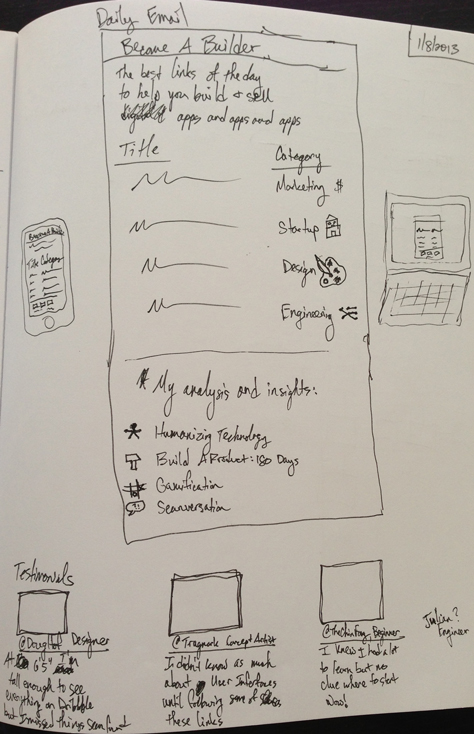 Daily Email
1/8/2013
Become A Builder
The best links of the day
to help you build & sell
apps and apps and apps
Title
Category
Marketing $
Startup
Design
Engineering
My analysis and insights:
Humanizing Technology
Build A Product: 180 Days
Gamification
Seanversation
Title Category
Testimonials
Designer
At 6'5" I'm
tall enough to see
everything on Dribbble
but I missed things seen first
@Tragnark Concept Artist
I didn't know as much
about User Interfaces
until following some of
these links
Beginner
I knew I had a lot
to learn but no
clue where to start
Now!
Julian?
Engineer